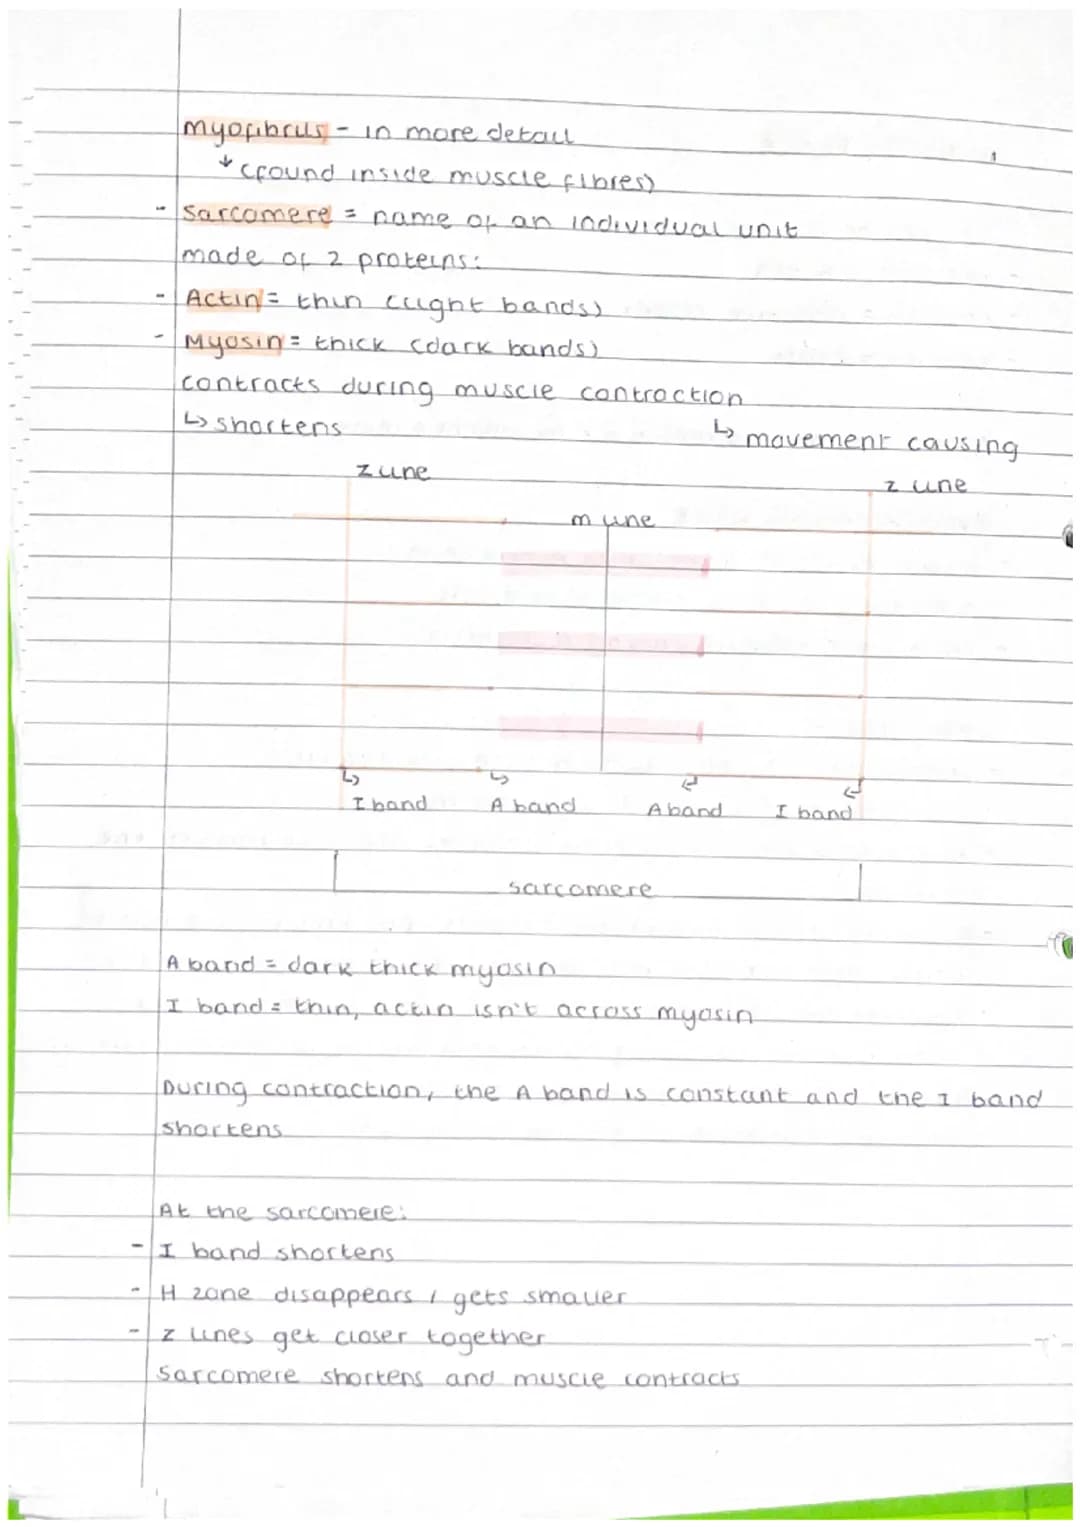 myofibrils - in more detail
↓ (found inside muscle fibres)
- Sarcomere = name of an individual unit
made of 2 proteins:
- Actin = thin (light bands)
- Myosin = thick (dark bands)
contracts during muscle contraction
↳ shortens ↳ movement causing
z line z line
m line
I band A band A band I band
sarcomere
A band = dark thick myosin
I band = thin, actin isn't across myosin
During contraction, the A band is constant and the I band
shortens
At the sarcomere:
- I band shortens
- H zone disappears / gets smaller
- z lines get closer together
sarcomere shortens and muscle contracts